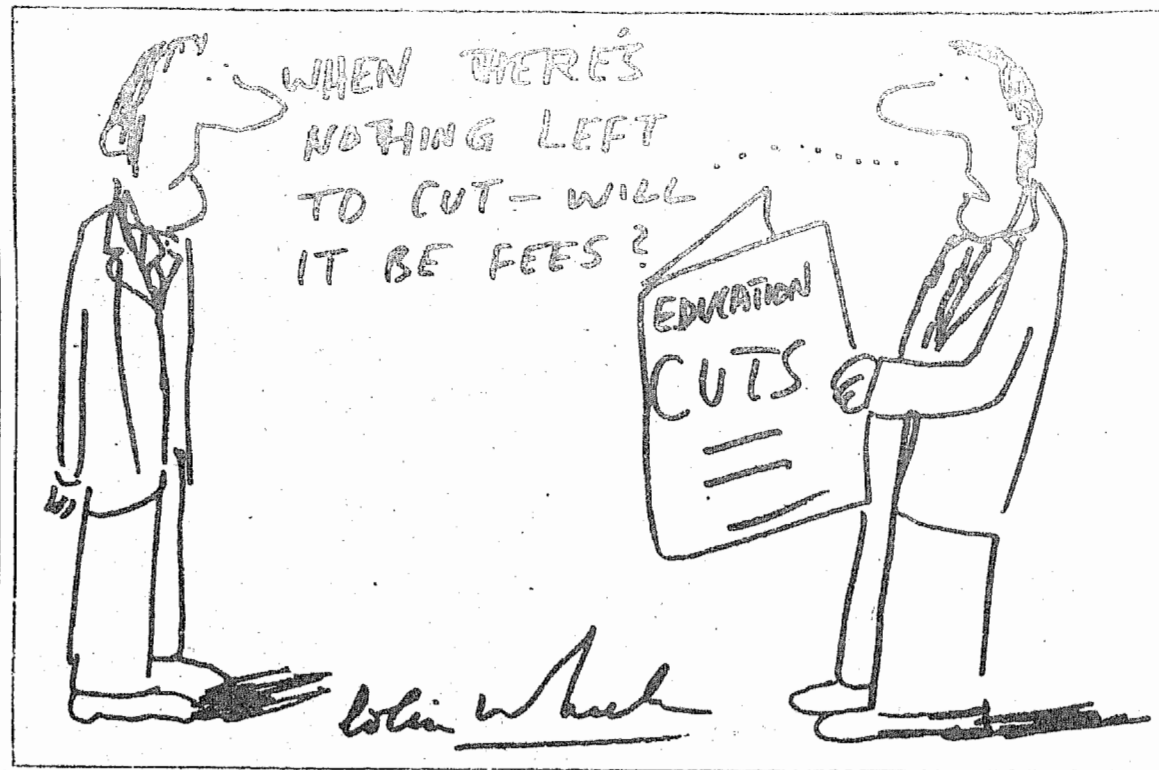 WHEN THERE'S
NOTHING LEFT
TO CUT – WILL
IT BE FEES?
EDUCATION
CUTS
Colin Wheeler